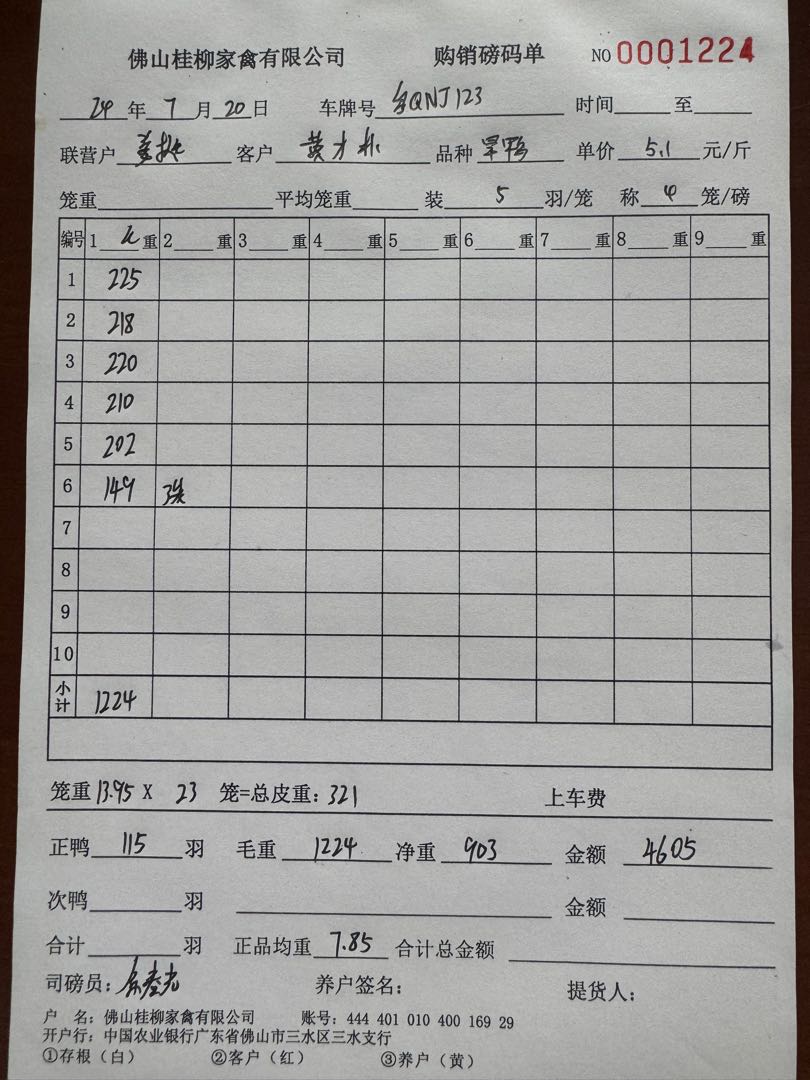 佛山桂柳家禽有限公司 购销磅码单 NO 0001224
24 年 7 月 20 日 车牌号 QNJ123 时间 至
联营户 客户 黄才 品种 旱鸭 单价 5.1 元/斤
笼重 平均笼重 装 5 羽/笼 称 4 笼/磅
编号 1 重 2 重 3 重 4 重 5 重 6 重 7 重 8 重 9 重
1 225
2 218
3 220
4 210
5 202
6 149 3笼
7
8
9
10
小计 1224
笼重 13.95 X 23 笼=总皮重: 321 上车费
正鸭 115 羽 毛重 1224 净重 903 金额 4605
次鸭 羽 金额
合计 羽 正品均重 7.85 合计总金额
司磅员: 养户签名: 提货人:
户 名: 佛山桂柳家禽有限公司 账号: 444 401 010 400 169 29
开户行: 中国农业银行广东省佛山市三水区三水支行
①存根(白) ②客户(红) ③养户(黄)